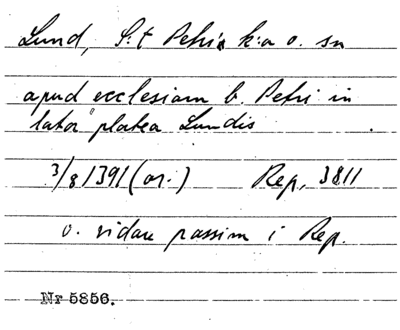 Lund, S:t Petri k:a o. sn
apud ecclesiam b. Petri in
lator platea Lundis
3/8 1391 (or.) Rep. 3811
o. vidare passim i Rep.
Nr 5856.